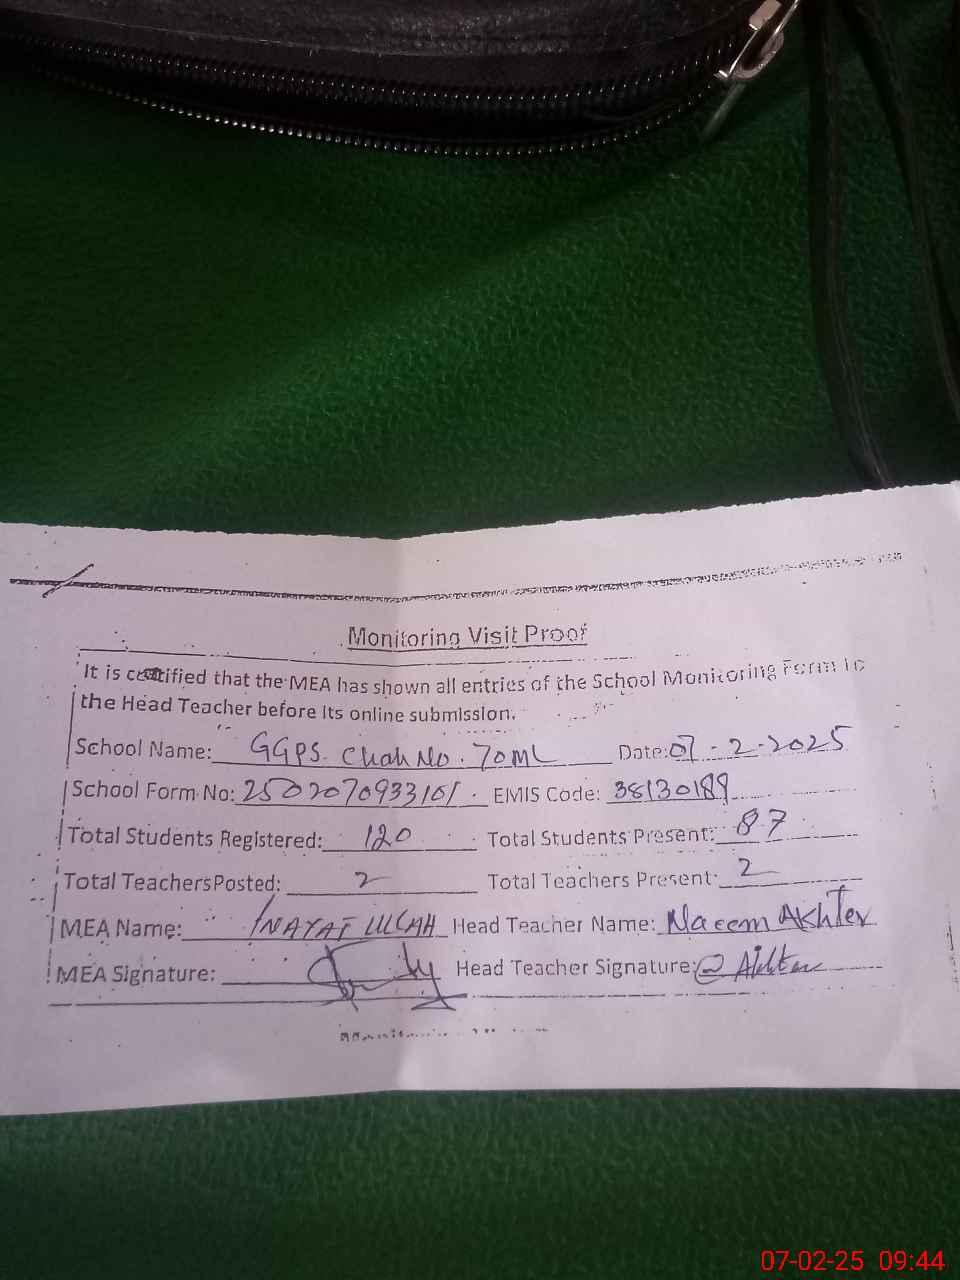 Monitoring Visit Proof
It is certified that the MEA has shown all entries of the School Monitoring Form to
the Head Teacher before its online submission.
School Name: GGPS. Chah No. 70ML Date: 07-2-2025
School Form No: 2502070933101. EMIS Code: 38130189
Total Students Registered: 120 Total Students Present: 87
Total TeachersPosted: 2 Total Teachers Present: 2
MEA Name: INAYAT ULLAH Head Teacher Name: Naeem Akhter
MEA Signature: Head Teacher Signature: Akhter
07-02-25 09:44